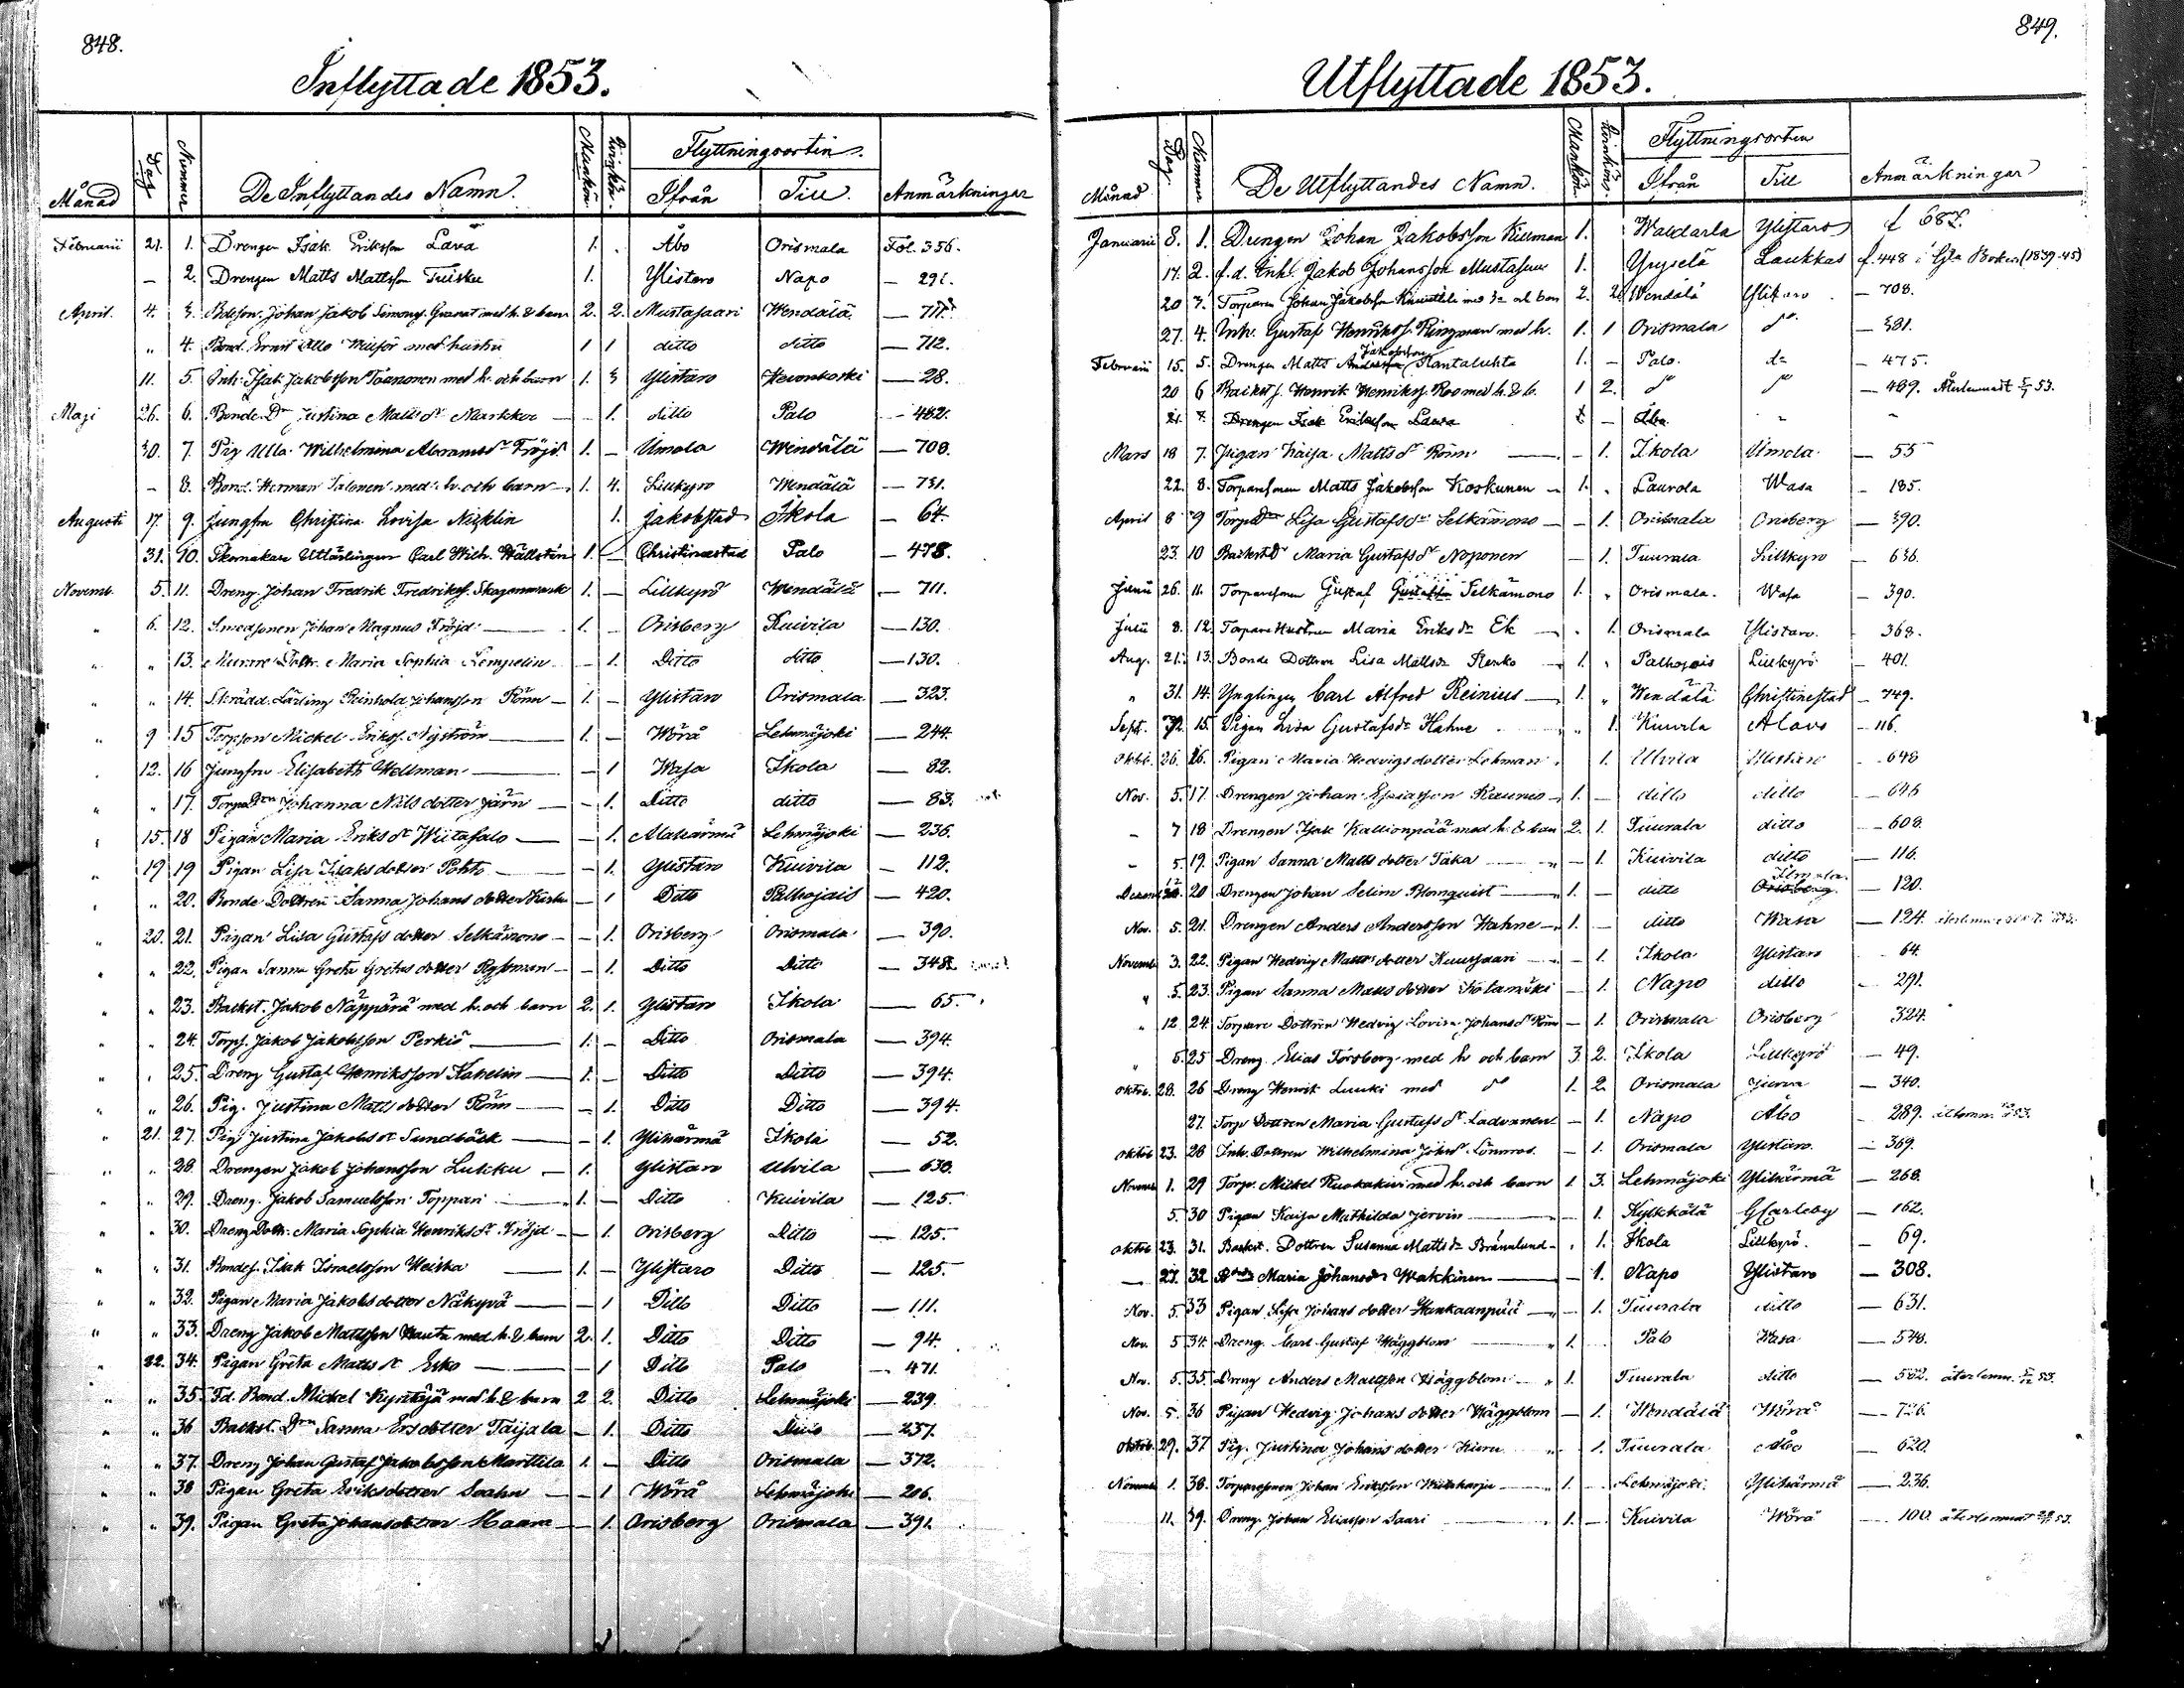 848.
Inflyttade 1853.
Månad Dag Nummer De Inflyttandes Namn. Mankön. Qvinkön. Flyttningsorten. Ifrån Till. Anmärkningar
Februarii 21. 1. Drengen Isak Eriksson Lava 1. Åbo Orismala Fol. 356.
– 2. Drengen Matts Mattsson Tuisku 1. Ylistaro Napo — 291.
April. 4. 3. Johan Jakob Simonss. Granat med h. & barn 2. 2. Mustasaari Wendälä
" 4. Bond. Ernst med hustru 1 1 ditto ditto — 712.
11. 5. Inh. Isak Jakobsson Taanonen med h. och barn 1. 3 Ylistaro — 28.
Maji 26. 6. Bonde Dr Justina Matts dr Markkor — 1. ditto Palo — 482.
30. 7. Pig Ulla Wilhelmina Abramsdr Fröjd 1. – Umola Wendälä — 708.
– 8. Bond. Herman Salonen med h. och barn 1. 4. Lillkyro Wendälä — 731.
Augusti 17. 9. Jungfru Christina Lovisa Nicklin 1. Jakobstad Ikola — 64.
31. 10. Skomakare Utlärlingen Carl Wilh. Wällstén 1. – Christinestad Palo — 478.
Novemb. 5. 11. Dreng. Johan Fredrik Fredrikss. 1. – Lillkyro Wendälä — 711.
" 6. 12. Smedsonen Johan Magnus Fröjd 1. – Orisberg Kuivila — 130.
" " 13. Maria Sophia Lempelin – 1. Ditto ditto — 130.
" " 14. Skrädd. Lärling Reinhold Johansson Rönn 1. – Ylistaro Orismala — 323.
" 9 15 Torpson Mickel Erikss. Nyström 1. – Wörå Lehmäjoki — 244.
12. 16 Jungfru Elisabeth Wellman – 1 Wasa Ikola — 82.
" " 17. Johanna Nils dotter Järn – 1. Ditto ditto — 83.
15. 18 Pigan Maria Eriks dr Wiitasalo – 1. Alahärmä Lehmäjoki — 236.
" 19 19 Pigan Lisa Isaks dotter Pohto – 1. Ylistaro Kuivila — 112.
" " 20. Bonde Dottren Sanna Johans dotter – 1 Ditto Palhojais — 420.
" 20. 21. Pigan Lisa Gustafs dotter Selkämono – 1. Orisberg Orismala — 390.
" " 22. Pigan Sanna Greta dotter – 1. Ditto Ditto — 348.
" " 23. Backst. Jakob Näppärä med h. och barn 2. 1. Ylistaro Ikola — 65.
" " 24. Torps. Jakob Jakobsson Perkiö 1. – Ditto Orismala — 394.
" " 25. Dreng Gustaf Henriksson 1. – Ditto Ditto — 394.
" " 26. Pig. Justina Matts dotter Rönn – 1. Ditto Ditto — 394.
" 21. 27. Pig Justina Jakobs dr Sundbäck – 1. Ylihärmä Ikola — 52.
" " 28. Drengen Jakob Johansson Lukku – 1. Ylistaro Ulvila — 630.
" " 29. Dreng. Jakob Samuelsson Toppari 1. – Ditto Kuivila — 125.
" " 30. Maria Sophia Henriksdr Fröjd – 1. Orisberg Ditto — 125.
" " 31. Bondes. Isak Israelsson Heiska 1. – Ylistaro Ditto — 125.
" " 32. Pigan Maria Jakobs dotter Näkyvä – 1 Ditto Ditto — 111.
" " 33. Dreng Jakob Mattsson Rauta med h. & barn 2. 1. Ditto Ditto — 94.
" 22. 34. Pigan Greta Matts dr Esko – 1 Ditto Palo — 471.
" " 35. Fd. Bond. Mickel med h. & barn 2 2. Ditto Lehmäjoki — 239.
" " 36 Backst. Drn Sanna Ersdotter Taijala – 1. Ditto Ditto — 237.
" " 37. Dreng Johan Gustaf Jakobsson Marttila 1. – Ditto Orismala — 372.
" " 38 Pigan Greta Eriksdotter – 1 Wörå Lehmäjoki — 206.
" " 39. Pigan Greta Johansdotter Haara – 1. Orisberg Orismala — 391.
849.
Utflyttade 1853.
Månad Dag Nummer De Utflyttandes Namn. Mankön. Qvinkön. Flyttningsorten Ifrån Till Anmärkningar
Januarii 8. 1. Drengen Johan Jakobsson Killman 1. Waldarla Ylistaro f 687.
17. 2. f.d. Inh. Jakob Johansson 1. Yryselä Laukkas f. 448 i Gla Boken (1839-45)
20 3. Torparen Johan Jakobsson med och barn 2. 2 Wendälä Ylistaro — 708.
27. 4. Inh. Gustaf Henrikss. Ringman med h. 1. 1 Orismala do — 381.
Februarii 15. 5. Drengen Matts Jakobsson Rantaluhta 1. – Palo do — 475.
20 6 Backst s. Henrik Henrikss. Roo med h. & b. 1 2. do do — 489. Återkommit 53.
21. 7. Drengen Isak Eriksson Lava 1 – Åbo " "
Mars 18 7. Pigan Kaisa Matts dr Rönn – 1. Ikola Umola — 55
22. 8. Torparesonen Matts Jakobsson Koskunen – 1. " Laurola Wasa – 185.
April 8 9 Lisa Gustafsdr Selkämono – 1. Orismala Orisberg — 390.
23. 10 Maria Gustafsdr Noponen – 1. Tuurala Lillkyro — 636
Junii 26. 11. Torparesonen Gustaf Gustafsson Selkämono 1. " Orismala. Wasa — 390.
Julii 8. 12. Torpare Hustrun Maria Eriks dr Ek – 1. Orismala Ylistaro. – 368.
Aug. 21. 13. Bonde Dottren Lisa Mattsdr 1. " Palhojais Lillkyrö – 401.
" 31. 14. Ynglingen Carl Alfred Reinius 1. " Wendälä Christinestad – 749.
Sept. 15. Pigan Lisa Gustafsdr Hahne 1. Kuivila Alavo – 116.
Oktb. 26. 16. Pigan Maria Hedvigs dotter Lehman 1. Ulvila Ylistaro – 648
Nov. 5. 17. Drengen Johan 1. – ditto ditto — 646
– 7 18 Drengen Isak Kallionpää med h. & barn 2. 1. Tuurala ditto — 608.
– 5 19. Pigan Sanna Matts dotter – 1. Kuivila ditto — 116.
20 Drengen Johan Selim Blomquist 1. – ditto Ilmola. Orisberg — 120.
Nov. 5. 21. Drengen Anders Andersson Hahne 1. – ditto Wasa — 124.
Novemb 3. 22. Pigan Hedvig Matts dotter Kuusisaari – 1. Ikola Ylistaro – 64.
" 5. 23. Pigan Sanna Matts dotter – 1. Napo ditto – 291.
" 12 24. Torpare Dottren Hedvig Lovisa Johans dr Rönn – 1. Orismala Orisberg 324.
" 5. 25 Dreng. Elias Forsberg med h och barn 3. 2. Ikola Lillkyrö — 49.
Oktob. 28. 26 Dreng Henrik Luuki med do 1. 2. Orismala Jurva — 340.
27. Torp Dottren Maria Gustafs dr – 1. Napo Åbo – 289.
Oktob 23. 28 Inh. Dottren Wilhelmina Johsdr Lönnros. – 1. Orismala Ylistaro. — 369.
Novemb 1. 29 Torp. Mickel Ruokakivi med h. och barn 1. 3. Lehmäjoki Ylihärmä — 268.
5. 30 Pigan Kaisa Mathilda Jervin – 1. Kylkkälä GCarleby — 162.
Oktob 23. 31. Backst. Dottren Susanna Matts dr Brännlund 1. Ikola Lillkyrö. – 69.
— 27. 32 Maria Johansdr Wakkinen – 1. Napo Ylistaro — 308.
Nov. 5. 33 Pigan Lisa Johans dotter Hankaanpää – 1. Tuurala ditto — 631.
Nov. 5 34. Dreng. Carl Gustaf Häggblom 1. Palo Wasa — 548.
Nov. 5. 35. Dreng Anders Mattsson Häggblom 1. Tuurala ditto — 582. återkomm. 53.
Nov. 5. 36 Pigan Hedvig Johans dotter Häggblom – 1. Wendälä Wörå — 726.
Oktob. 29. 37. Pig. Justina Johans dotter 1. Tuurala Åbo — 620.
Novemb 1. 38. Torparesonen Johan Eriksson 1. – Lehmäjoki. Ylihärmä — 236.
11. 39. Dreng Johan Eliasson Saari 1. – Kuivila Wörå — 100. återkommit 53.